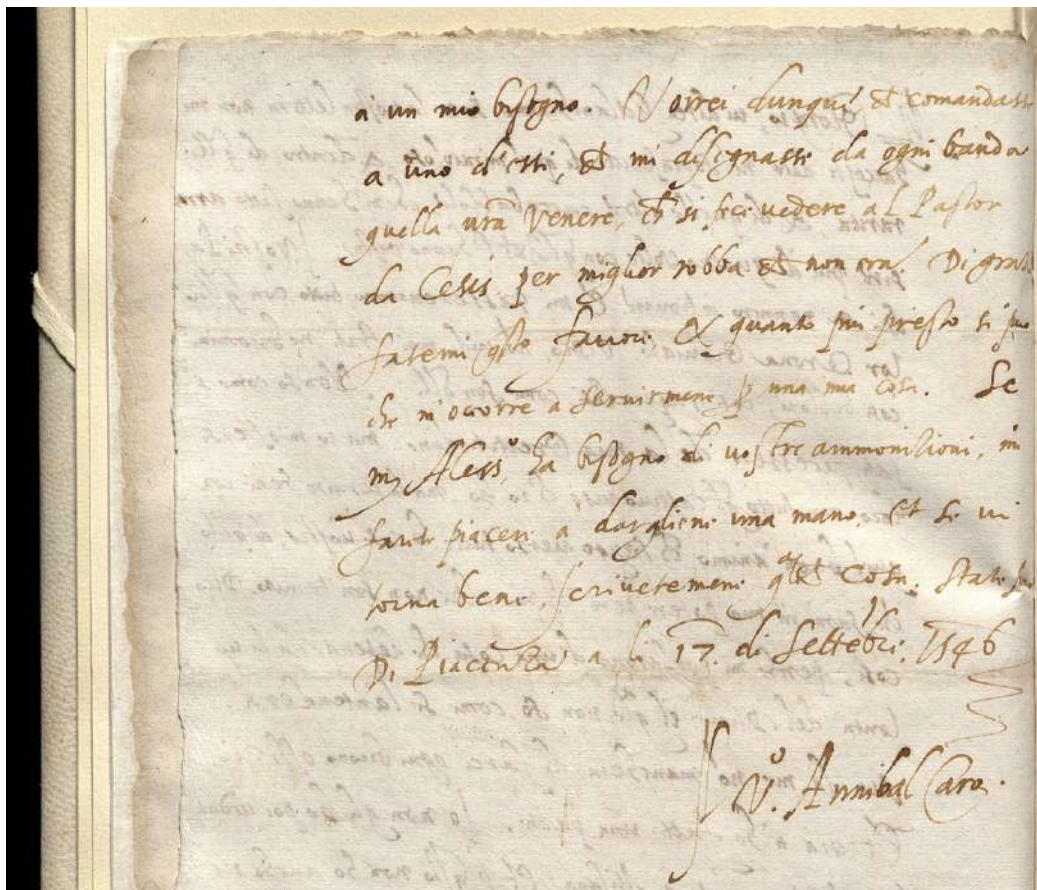 a un mio bisogno. Vorrei dunque ch comandaste
a uno d'essi, ch mi disegnasse da ogni banda
quella vrã Venere, ch si fece vedere al Pastor
da Cesis per miglior robba ch non era. Di gratia
fatemi q̃sto favore & quanto piu presto si puo
che m'occorre a servirmene p una mia cosa. Se
m Alessº ha bisogno di vostre ammonitioni, mi
farete piacere a dargliene una mano, et se vi
torna bene, scrivetemene qualche cosa. State
Di Piacenza a li 17. di Settẽbre. 1546
Vº. Annibal Caro.